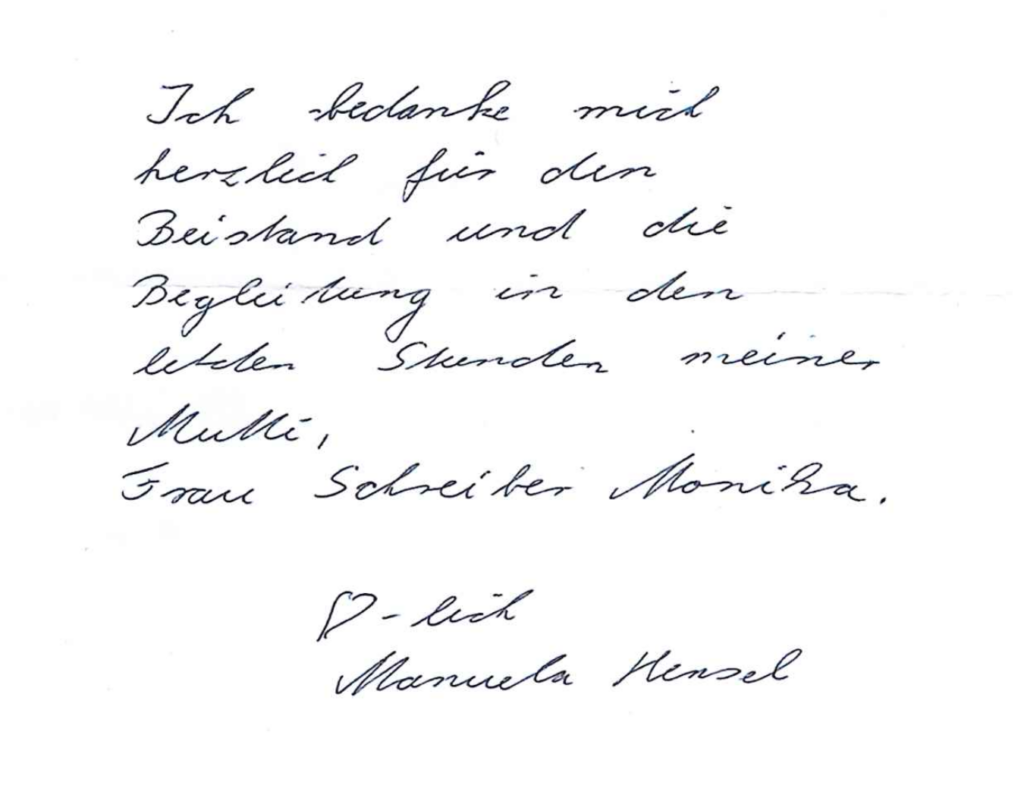 Ich bedanke mich
herzlich für den
Beistand und die
Begleitung in den
letzten Stunden meiner
Mutti,
Frau Schreiber Monika.
♡-lich
Manuela Hensel